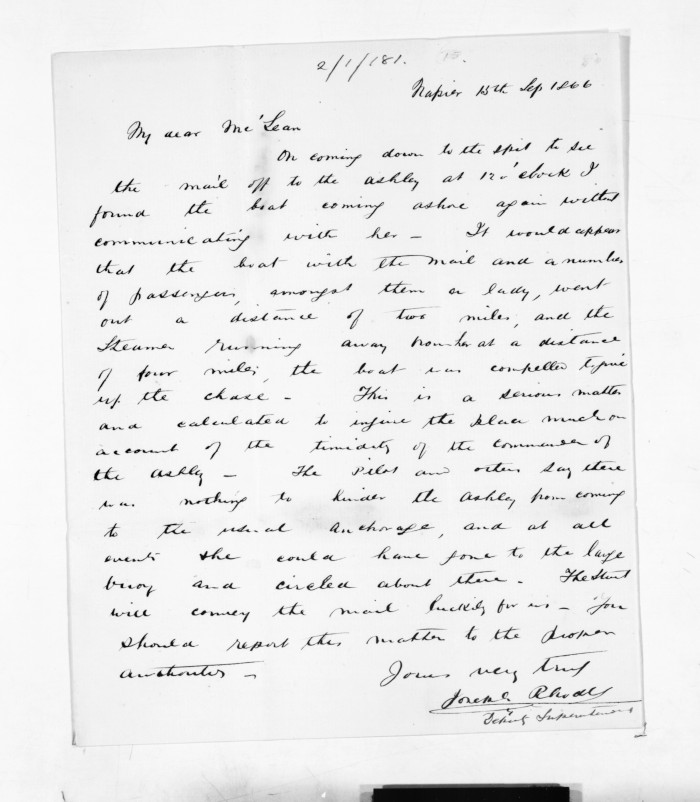 2/1/181.
Napier 15th Sep 1866
My dear McLean
On coming down to the spit to see
the mail off to the Ashley at 12 o'clock I
found the boat coming ashore again without
communicating with her – It would appear
that the boat with the mail and a number
of passengers, amongst them a lady, went
out a distance of two miles, and the
Steamer running away from her at a distance
of four miles, the boat was compelled to give
up the chase – This is a serious matter
and calculated to injure the place much on
account of the timidity of the commander of
the Ashley – The Pilot and others say there
was nothing to hinder the Ashley from coming
to the usual anchorage, and at all
events she could have gone to the large
buoy and circled about there – The Sturt
will convey the mail luckily for us – You
should report this matter to the proper
authorities –
Yours very truly
Joseph Rhodes
Deputy Superintendent